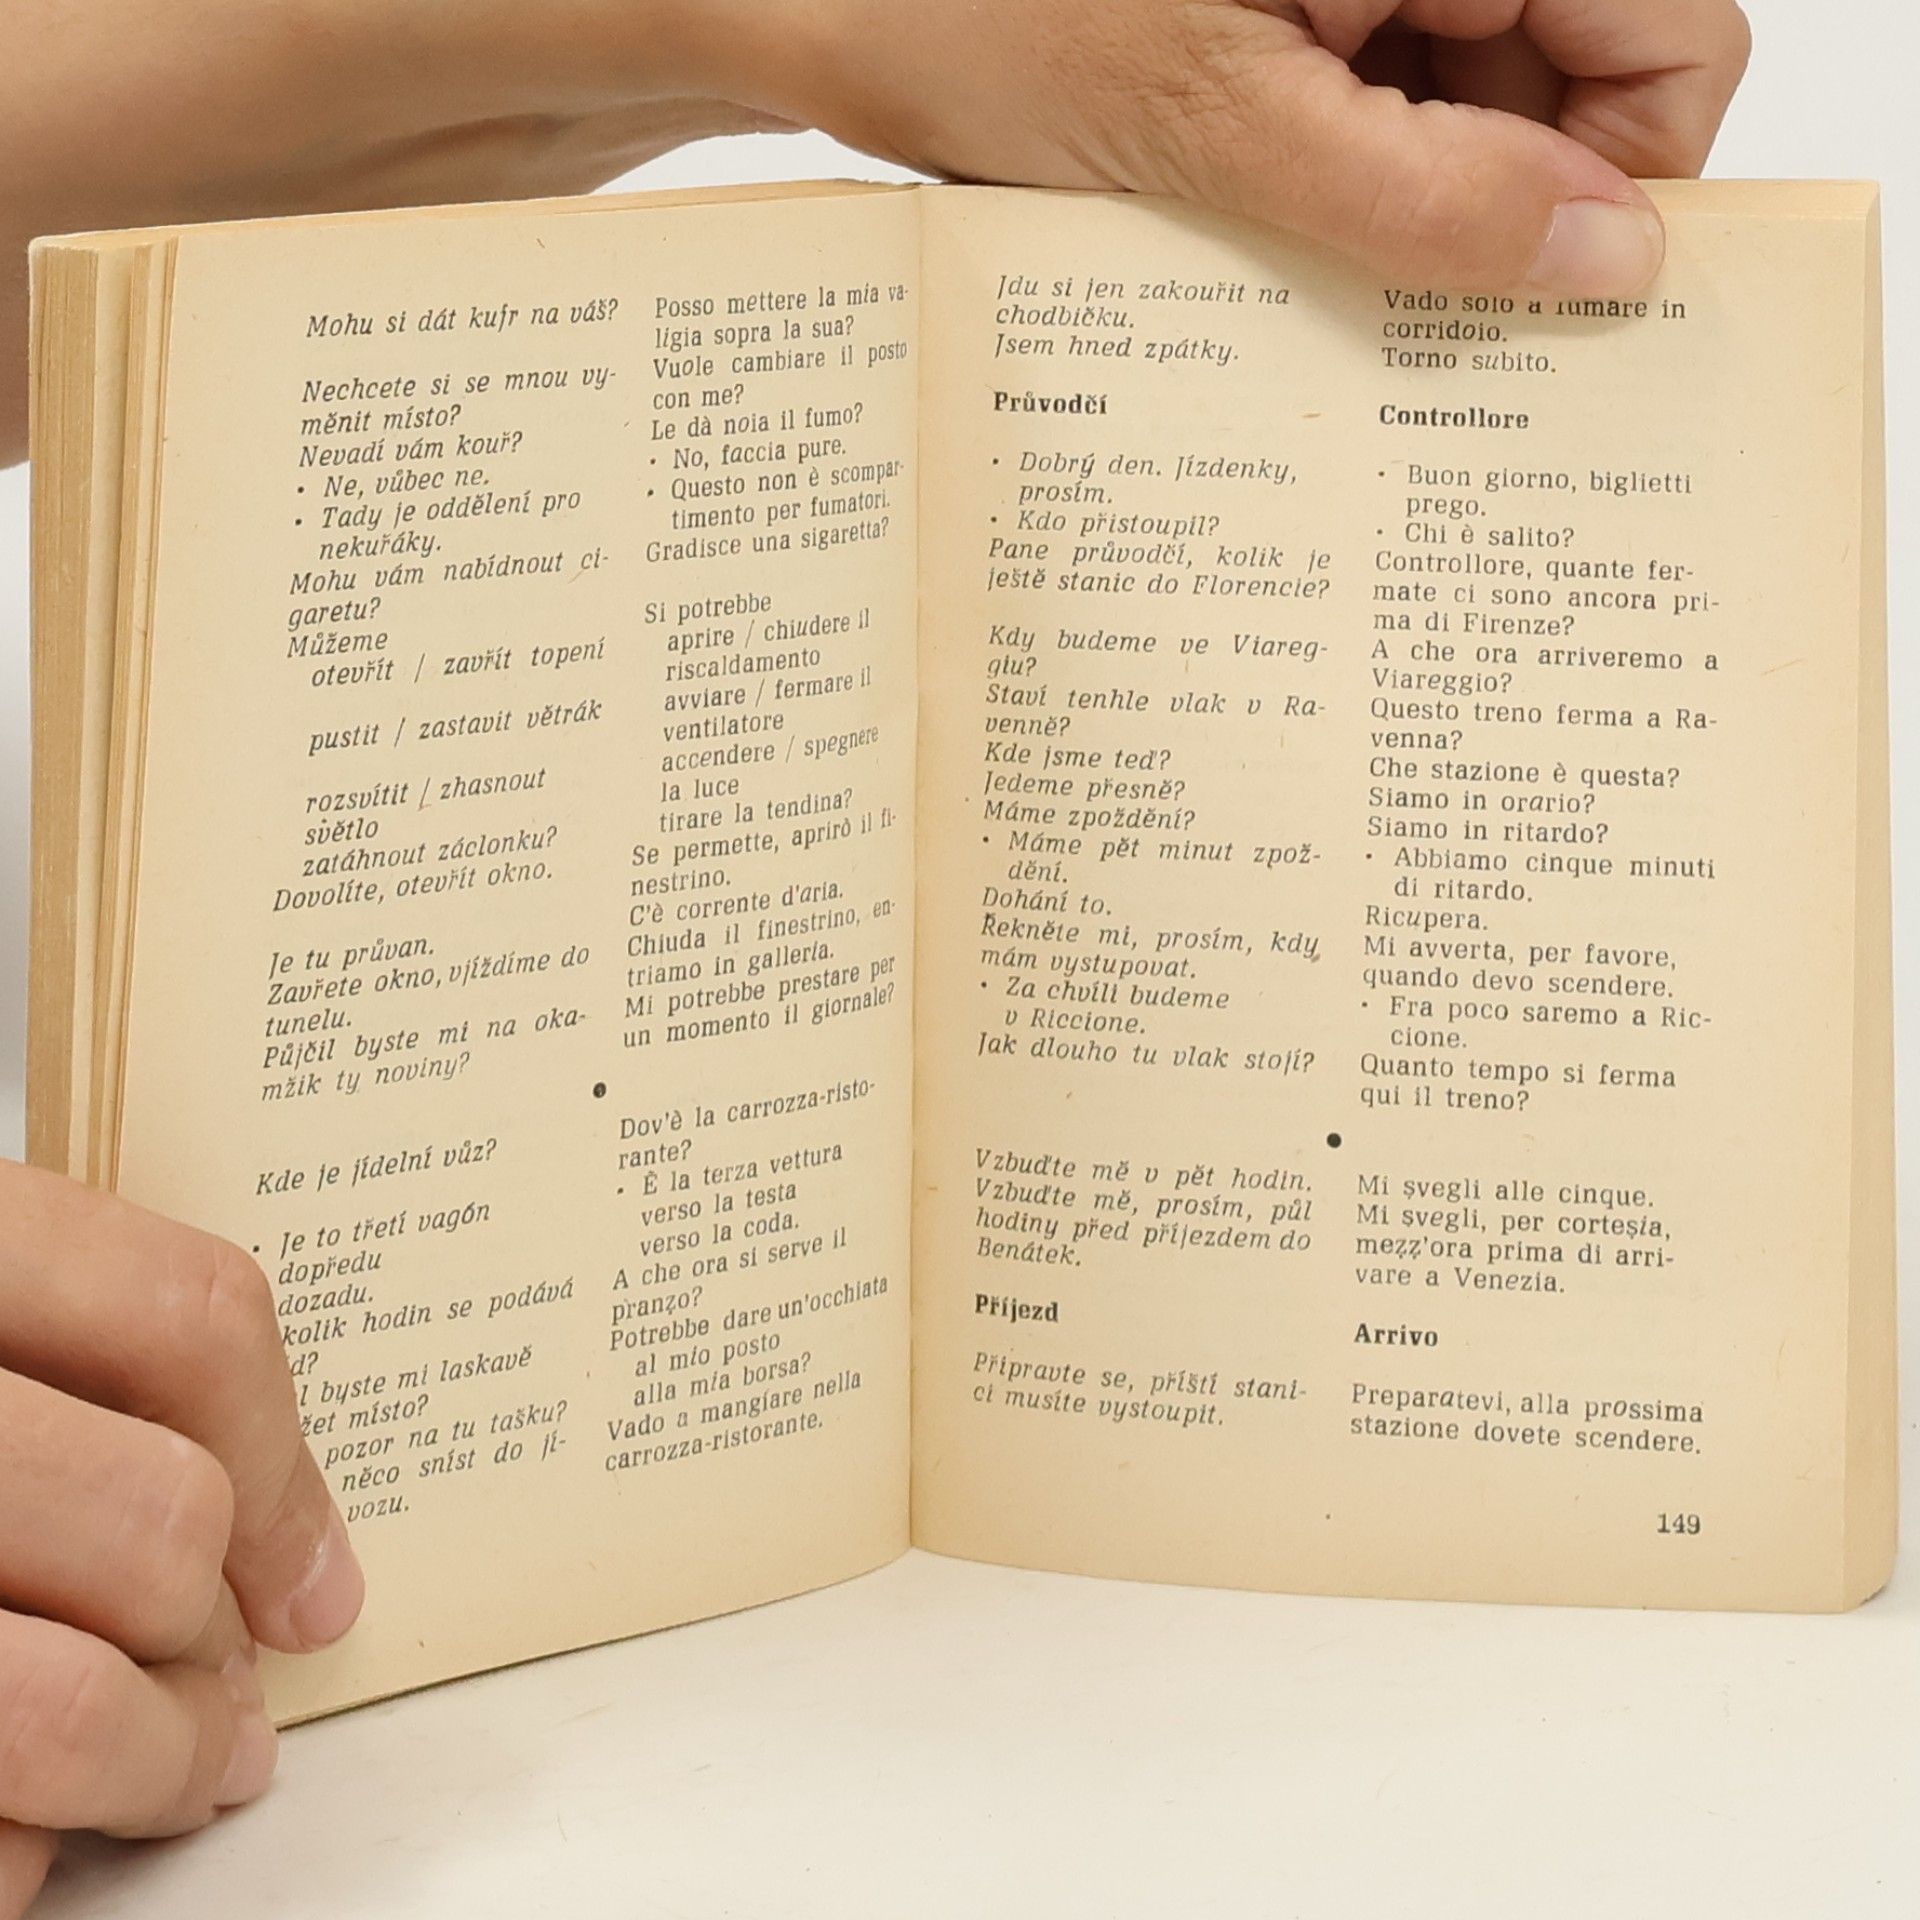 Mohu si dát kufr na váš?
Nechcete si se mnou vy-
měnit místo?
Nevadí vám kouř?
• Ne, vůbec ne.
• Tady je oddělení pro
nekuřáky.
Mohu vám nabídnout ci-
garetu?
Můžeme
otevřít / zavřít topení
pustit / zastavit větrák
rozsvítit / zhasnout
světlo
zatáhnout záclonku?
Dovolíte, otevřít okno.
Je tu průvan.
Zavřete okno, vjíždíme do
tunelu.
Půjčil byste mi na oka-
mžik ty noviny?
Kde je jídelní vůz?
• Je to třetí vagón
dopředu
dozadu.
kolik hodin se podává
d?
l byste mi laskavě
žet místo?
pozor na tu tašku?
něco sníst do jí-
vozu.
Posso mettere la mia va-
ligia sopra la sua?
Vuole cambiare il posto
con me?
Le dà noia il fumo?
• No, faccia pure.
• Questo non è scompar-
timento per fumatori.
Gradisce una sigaretta?
Si potrebbe
aprire / chiudere il
riscaldamento
avviare / fermare il
ventilatore
accendere / spegnere
la luce
tirare la tendina?
Se permette, aprirò il fi-
nestrino.
C'è corrente d'aria.
Chiuda il finestrino, en-
triamo in galleria.
Mi potrebbe prestare per
un momento il giornale?
●
Dov'è la carrozza-risto-
rante?
• È la terza vettura
verso la testa
verso la coda.
A che ora si serve il
pranzo?
Potrebbe dare un'occhiata
al mio posto
alla mia borsa?
Vado a mangiare nella
carrozza-ristorante.
Jdu si jen zakouřit na
chodbičku.
Jsem hned zpátky.
Průvodčí
• Dobrý den. Jízdenky,
prosím.
• Kdo přistoupil?
Pane průvodčí, kolik je
ještě stanic do Florencie?
Kdy budeme ve Viareg-
giu?
Staví tenhle vlak v Ra-
venně?
Kde jsme teď?
Jedeme přesně?
Máme zpoždění?
• Máme pět minut zpož-
dění.
Dohání to.
Řekněte mi, prosím, kdy
mám vystupovat.
• Za chvíli budeme
v Riccione.
Jak dlouho tu vlak stojí?
Vzbuďte mě v pět hodin.
Vzbuďte mě, prosím, půl
hodiny před příjezdem do
Benátek.
Příjezd
Připravte se, příští stani-
ci musíte vystoupit.
Vado solo a fumare in
corridoio.
Torno subito.
Controllore
• Buon giorno, biglietti
prego.
• Chi è salito?
Controllore, quante fer-
mate ci sono ancora pri-
ma di Firenze?
A che ora arriveremo a
Viareggio?
Questo treno ferma a Ra-
venna?
Che stazione è questa?
Siamo in orario?
Siamo in ritardo?
• Abbiamo cinque minuti
di ritardo.
Ricupera.
Mi avverta, per favore,
quando devo scendere.
• Fra poco saremo a Ric-
cione.
Quanto tempo si ferma
qui il treno?
●
Mi șvegli alle cinque.
Mi șvegli, per corteșia,
mezz'ora prima di arri-
vare a Venezia.
Arrivo
Preparatevi, alla prossima
stazione dovete scendere.
149